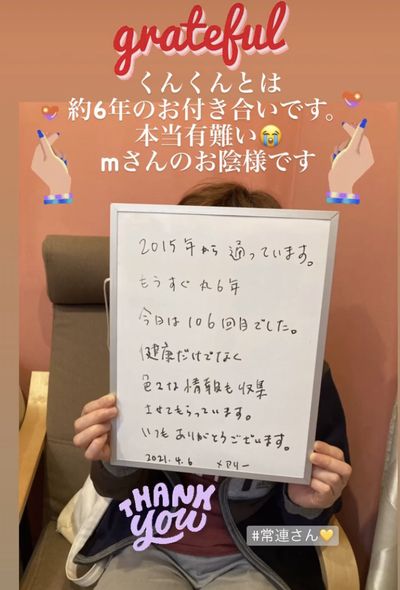 grateful
くんくんとは
約6年のお付き合いです。
本当有難い😭
mさんのお陰様です
2015年から通っています。
もうすぐ丸6年
今日は106回目でした。
健康だけでなく
色々な情報も収集
させてもらっています。
いつもありがとうございます。
2021.4.6 メアリー
THANK
YOU
#常連さん💛